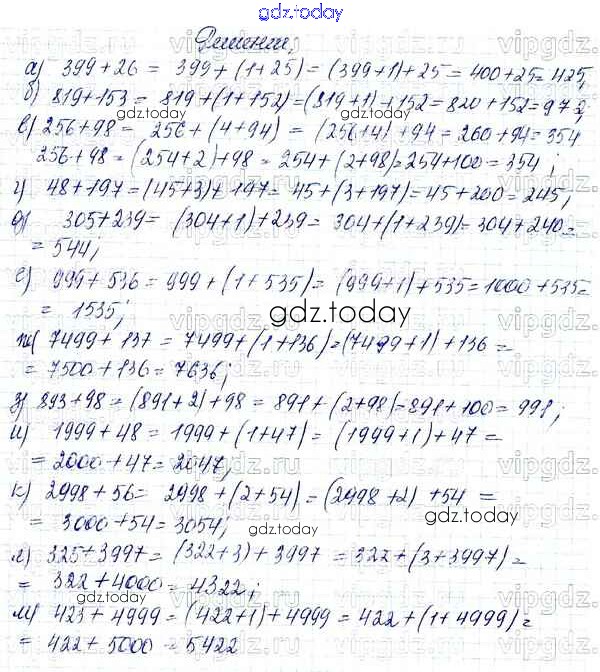 gdz.today
Решение;
а) 399+26 = 399+(1+25)=(399+1)+25=400+25=425;
б) 819+153 = 819+(1+152)=(819+1)+152=820+152=972;
в) 256+98 = 256+(4+94) = (256+4)+94=260+94=354
256+98=(254+2)+98=254+(2+98)=254+100=354;
г) 48+197=(45+3)+197=45+(3+197)=45+200=245;
д) 305+239= (304+1)+239= 304+(1+239)=304+240=
= 544;
е) 999+536 = 999+(1+535)= (999+1)+535=1000+535=
= 1535;
gdz.today
ж) 7499+137 = 7499+(1+136)=(7499+1)+136=
= 7500+136=7636;
з) 893+98=(891+2)+98 = 891+(2+98)=891+100=991;
и) 1999+48=1999+(1+47)= (1999+1)+47=
= 2000+47=2047;
к) 2998+56= 2998+(2+54)=(2998+2)+54 =
= 3000+54=3054;
gdz.today
л) 325+3997=(322+3)+3997 =322+(3+3997)=
= 322+4000=4322;
м) 423+4999=(422+1)+4999=422+(1+4999)=
= 422+5000=5422
gdz.today